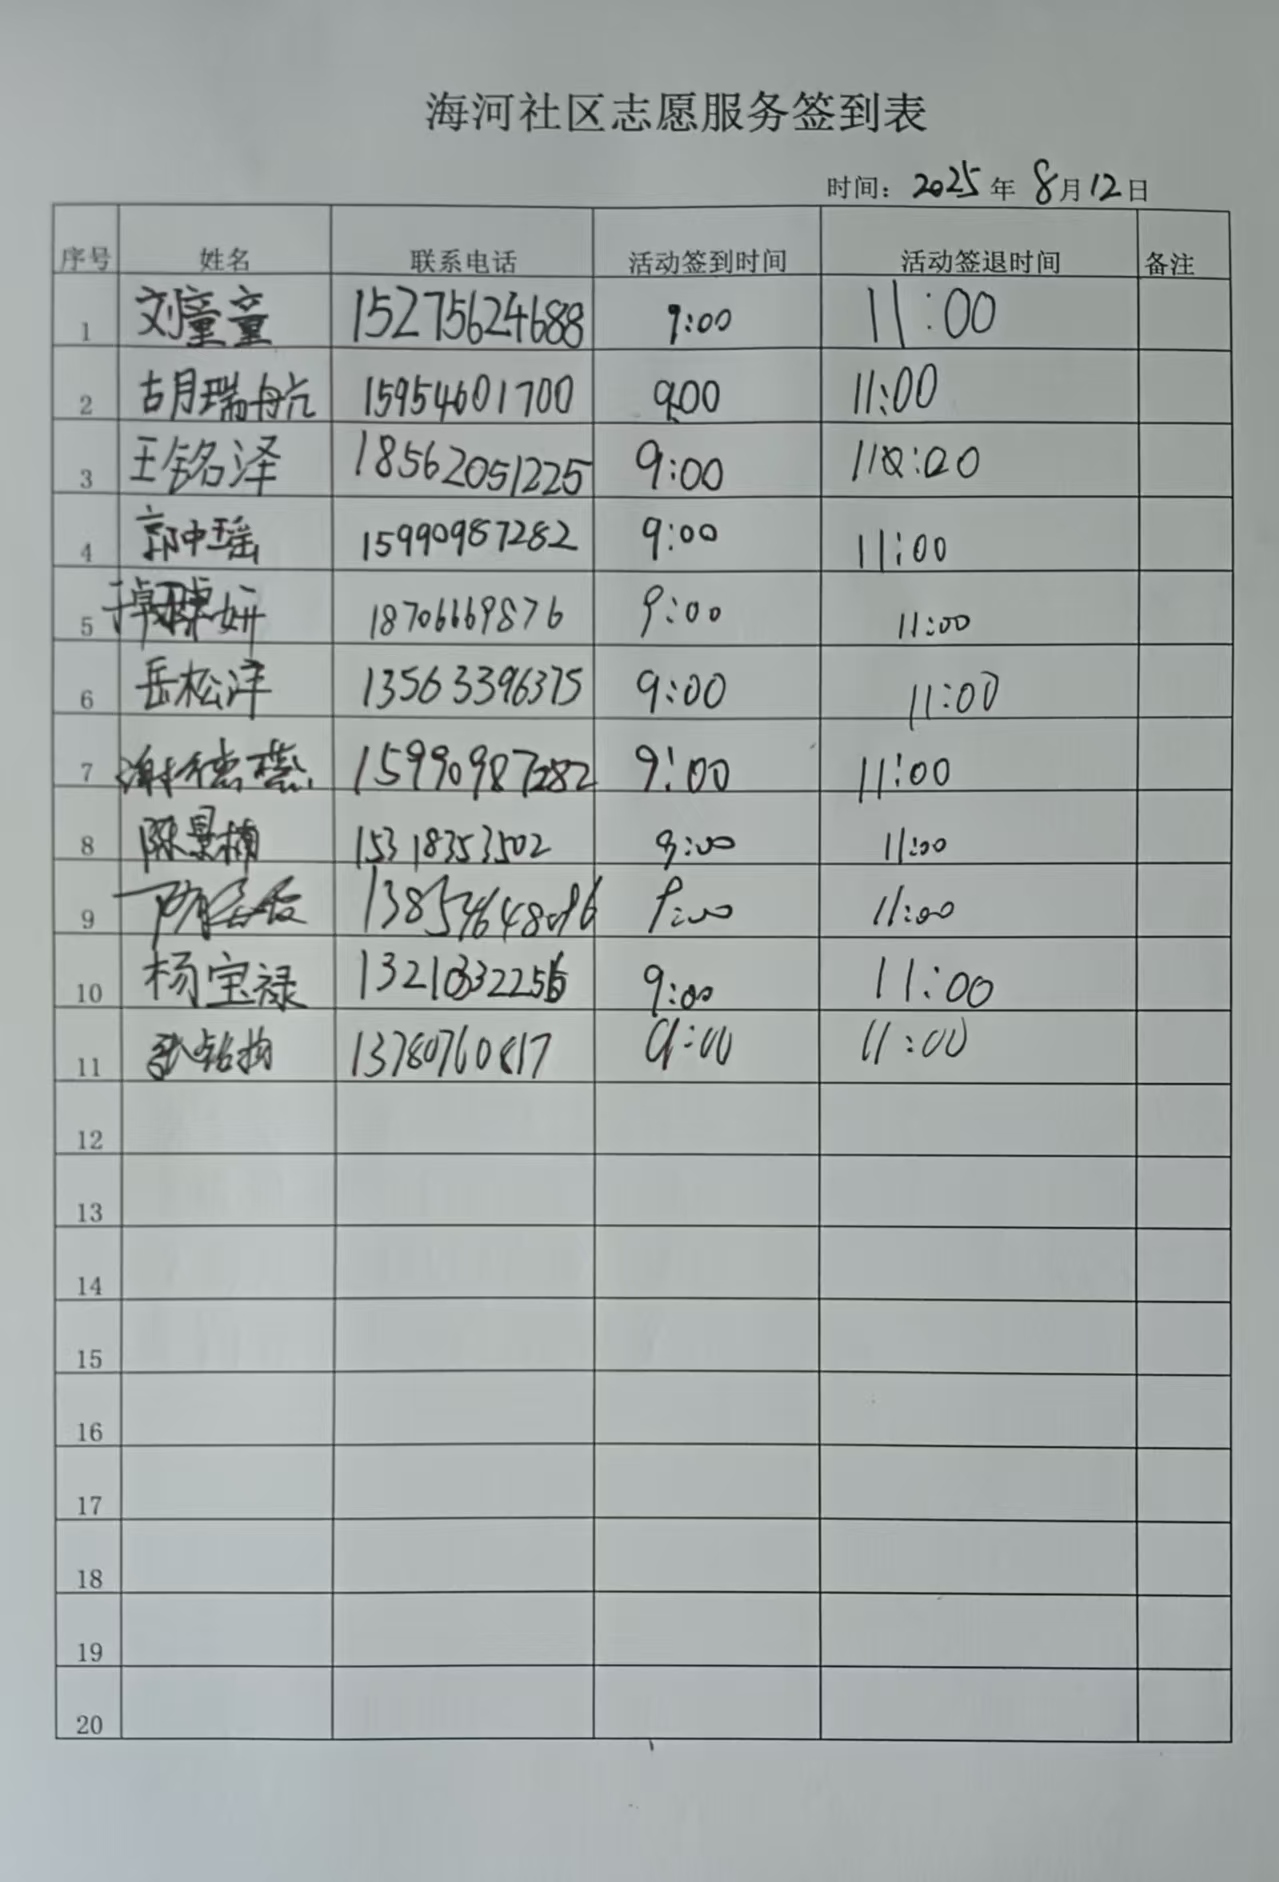 海河社区志愿服务签到表
时间：2025年8月12日
序号 姓名 联系电话 活动签到时间 活动签退时间 备注
1 刘童童 15275624688 9:00 11:00
2 胡瑞航 15954601700 9:00 11:00
3 王铭泽 18562051225 9:00 11:00
4 郭中瑶 15990987282 9:00 11:00
5 18706669876 9:00 11:00
6 岳松洋 13563396375 9:00 11:00
7 谢德蕊 15990987282 9:00 11:00
8 陈景楠 15318353502 9:00 11:00
9 9:00 11:00
10 杨宝禄 9:00 11:00
11 13780760817 9:00 11:00
12
13
14
15
16
17
18
19
20